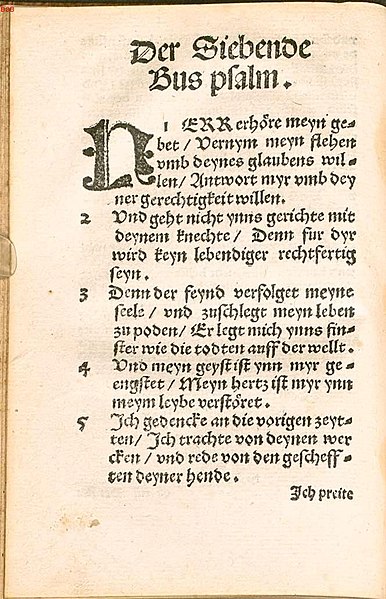 Der Siebende
Bus psalm.
1 HERR erhöre meyn ge-
bet / Vernym meyn flehen
vmb deynes glaubens wil-
len / Antwort myr vmb dey
ner gerechtigkeit willen.
2 Vnd geht nicht ynns gerichte mit
deynem knechte / Denn fur dyr
wird keyn lebendiger rechtfertig
seyn.
3 Denn der feynd verfolget meyne
seele / vnd zuschlegt meyn leben
zu poden / Er legt mich ynns fin-
ster wie die todten auff der wellt.
4 Vnd meyn geyst ist ynn myr ge-
engstet / Meyn hertz ist myr ynn
meym leybe verstöret.
5 Ich gedencke an die vorigen zeyt-
ten / Ich trachte von deynen wer
cken / vnd rede von den gescheff-
ten deyner hende.
Ich preite